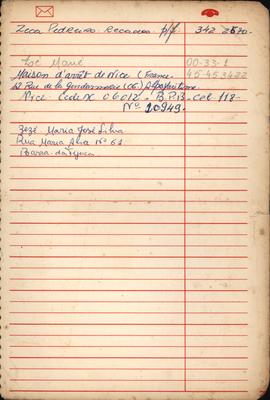 Zeca Pedreiro. Recados p/f 342 2570
José Mané 00-33-1
Maison d'arrêt de Nice (France 45-453422
12 Rue de la Gendarmerie (06) Alpes Maritime
Nice Cedex 06012 - B.P.B - cel. 118-
Nº 20949.
Zezé Maria José Silva
Rua Maria Nº 61
Barra da Tijuca